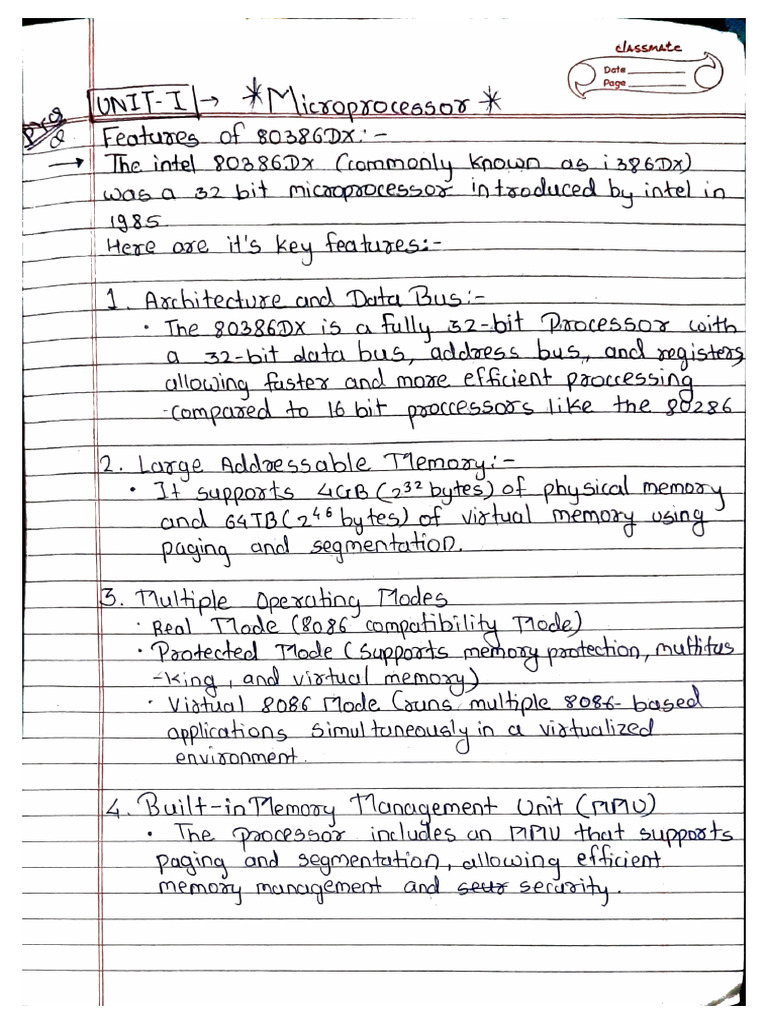 classmate
Date
Page
UNIT-I → *Microprocessor*
Features of 80386DX:-
→ The intel 80386DX (commonly known as i386DX)
was a 32 bit microprocessor introduced by intel in
1985.
Here are it's key features:-
1. Architecture and Data Bus:-
• The 80386DX is a fully 32-bit Processor with
a 32-bit data bus, address bus, and registers,
allowing faster and more efficient proccessing
compared to 16 bit proccessors like the 80286
2. Large Addressable Memory:-
• It supports 4GB (2³² bytes) of physical memory
and 64TB (2⁴⁶ bytes) of virtual memory using
paging and segmentation.
3. Multiple Operating Modes
• Real Mode (8086 compatibility Mode)
• Protected Mode (supports memory protection, multitas
-king, and virtual memory)
• Virtual 8086 Mode (runs multiple 8086-based
applications simultaneously in a virtualized
environment.
4. Built-in Memory Management Unit (MMU)
• The processor includes an MMU that supports
paging and segmentation, allowing efficient
memory management and security.